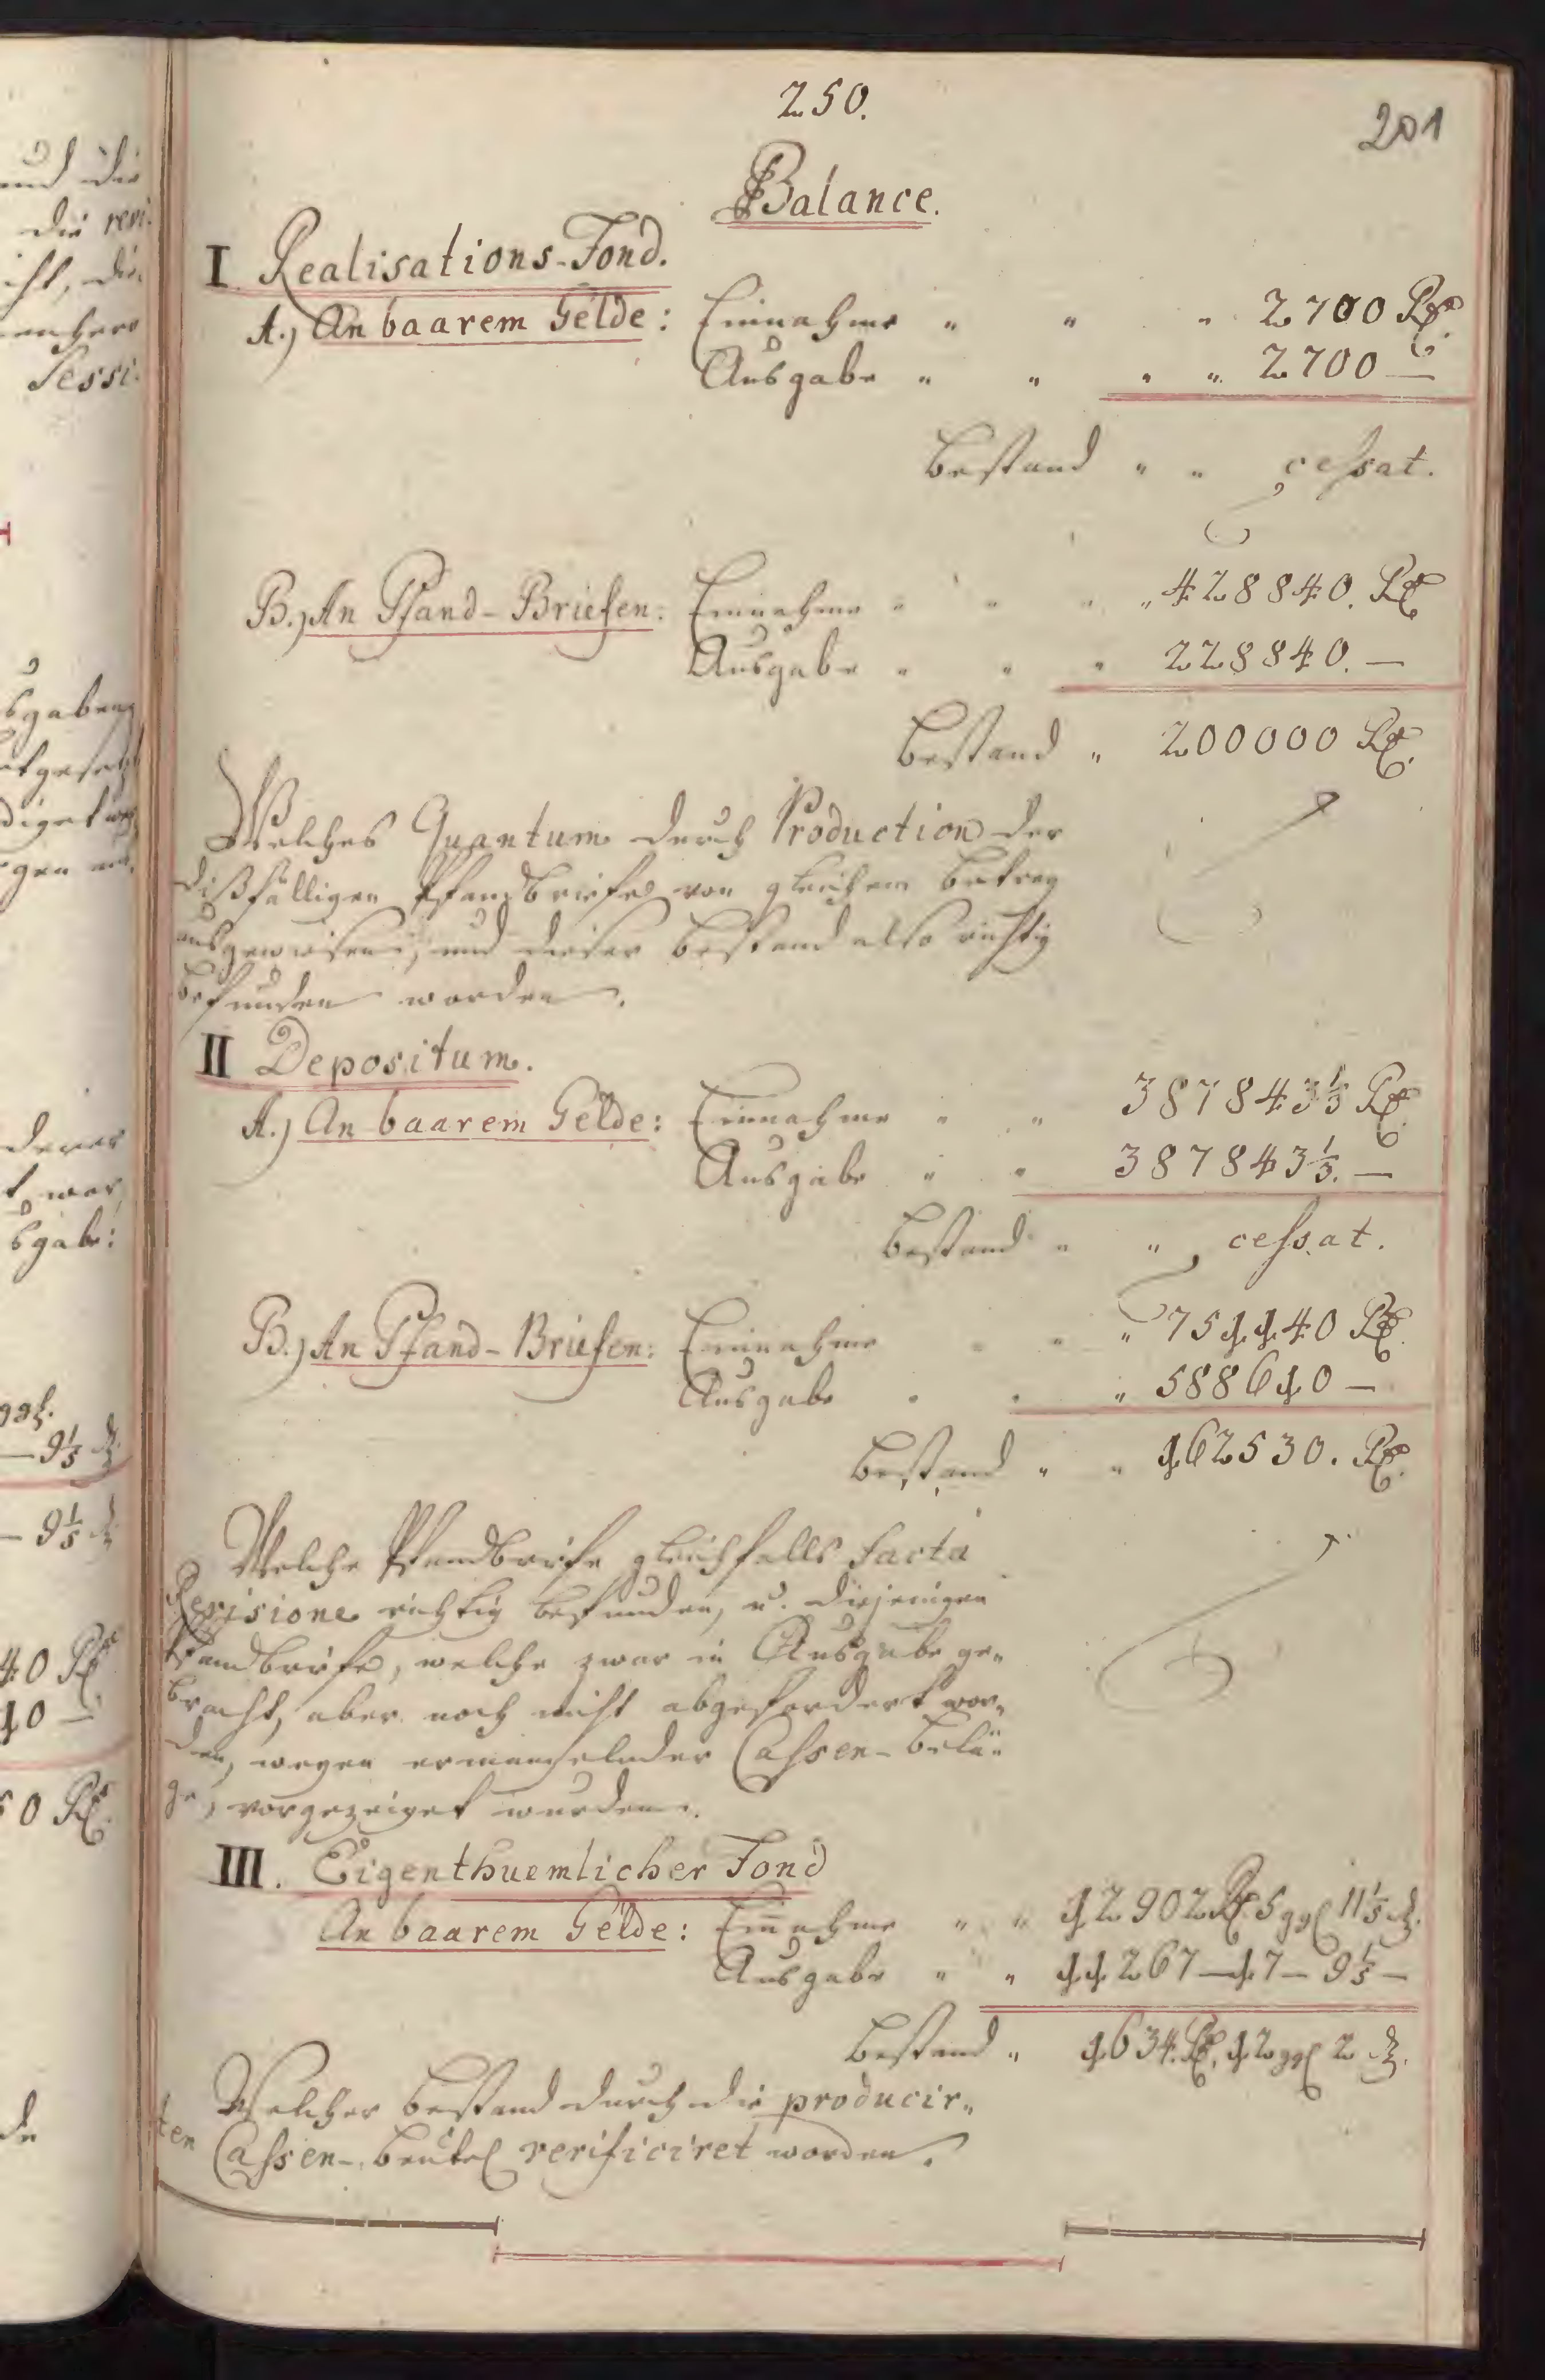 250.
201
Balance.
I Realisations-Fond.
A.) An baarem Gelde: Einnahme " " " 2700 Rt
Ausgabe " " " " 2700 —
Bestand " " cessat.
B.) An Pfand-Briefen: Einnahme " " " " 428840. Rt
Ausgabe " " " 228840. —
Bestand " 200000 Rt.
Welches Quantum durch Production der
dißfälligen Pfandbriefe von gleichem Betrag
ausgewiesen, und dieser Bestand also richtig
befunden worden.
II Depositum.
A.) An baarem Gelde: Einnahme " " 387843⅓ Rt
Ausgabe " " 387843⅓. —
Bestand " " cessat.
B.) An Pfand-Briefen: Einnahme " " " 751140 Rt.
Ausgabe " " " 588610 —
Bestand " " 162530. Rt.
Welche Pfandbriefe gleichfalls facta
Revisione richtig befunden, u. diejenigen
Pfandbriefe, welche zwar in Ausgabe ge„
bracht, aber noch nicht abgefordert wor„
den, wegen ermangelnder Cassen-Belä„
ge, vorgezeiget wurden.
III. Eigenthuemlicher Fond
An baarem Gelde: Einnahme " " 12902 Rt. 5 ggl 11⅕ d.
Ausgabe " " 11267 — 17 — 9⅕ —
Bestand " 1634. Rt. 12 ggl 2 d.
Welcher Bestand durch die producir„
ten Cassen-Beutel verificiret worden.